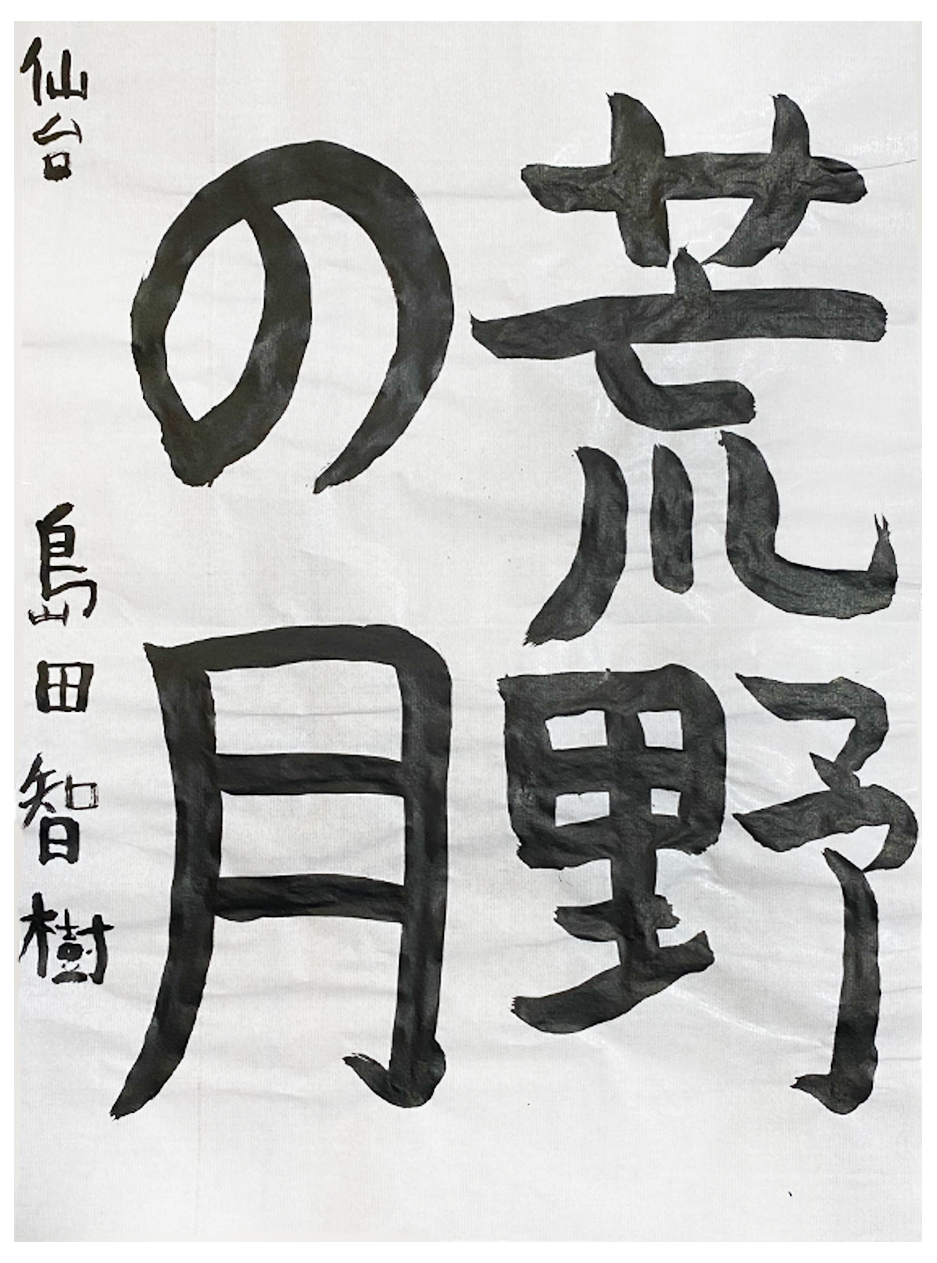 荒野
の月
仙台 島田智樹